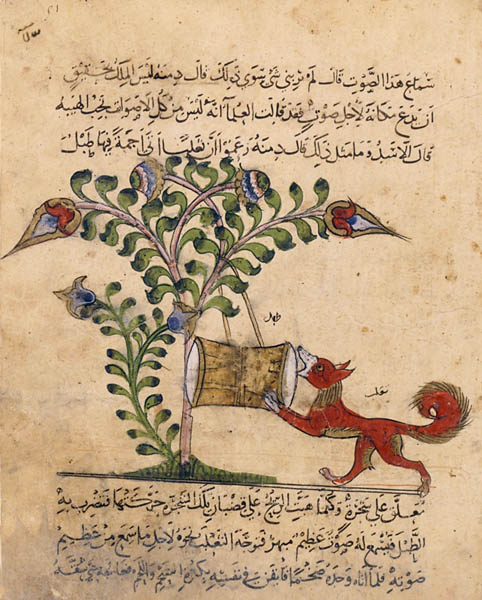 سماع هذا الصَّوت قال لم يربني شي سوي ذلك قال دمنه ليس الملك بحقيق
ان يدع مكانه لاجل صوت فقد قالت العلما انه ليس من كل الاصوات تجب الهيبه
قال الاسد وما مثل ذلك قال دمنه زعموا ان ثعلبًا اتى اجمةً فيها طبل
طبل
ثعلب
معلق على شجرة وكلما هبت الريح على قضبان تلك الشجره حركتها فتضرب به
الطبل فيسمع له صوت عظيم فتوجه الثعلب نحوه لاجل ما سمع من عظيم
صوته فلما اتاه وجده ضخمًا فايقن في نفسه بكثرة الشحم واللحم فعالجه حتى شقه